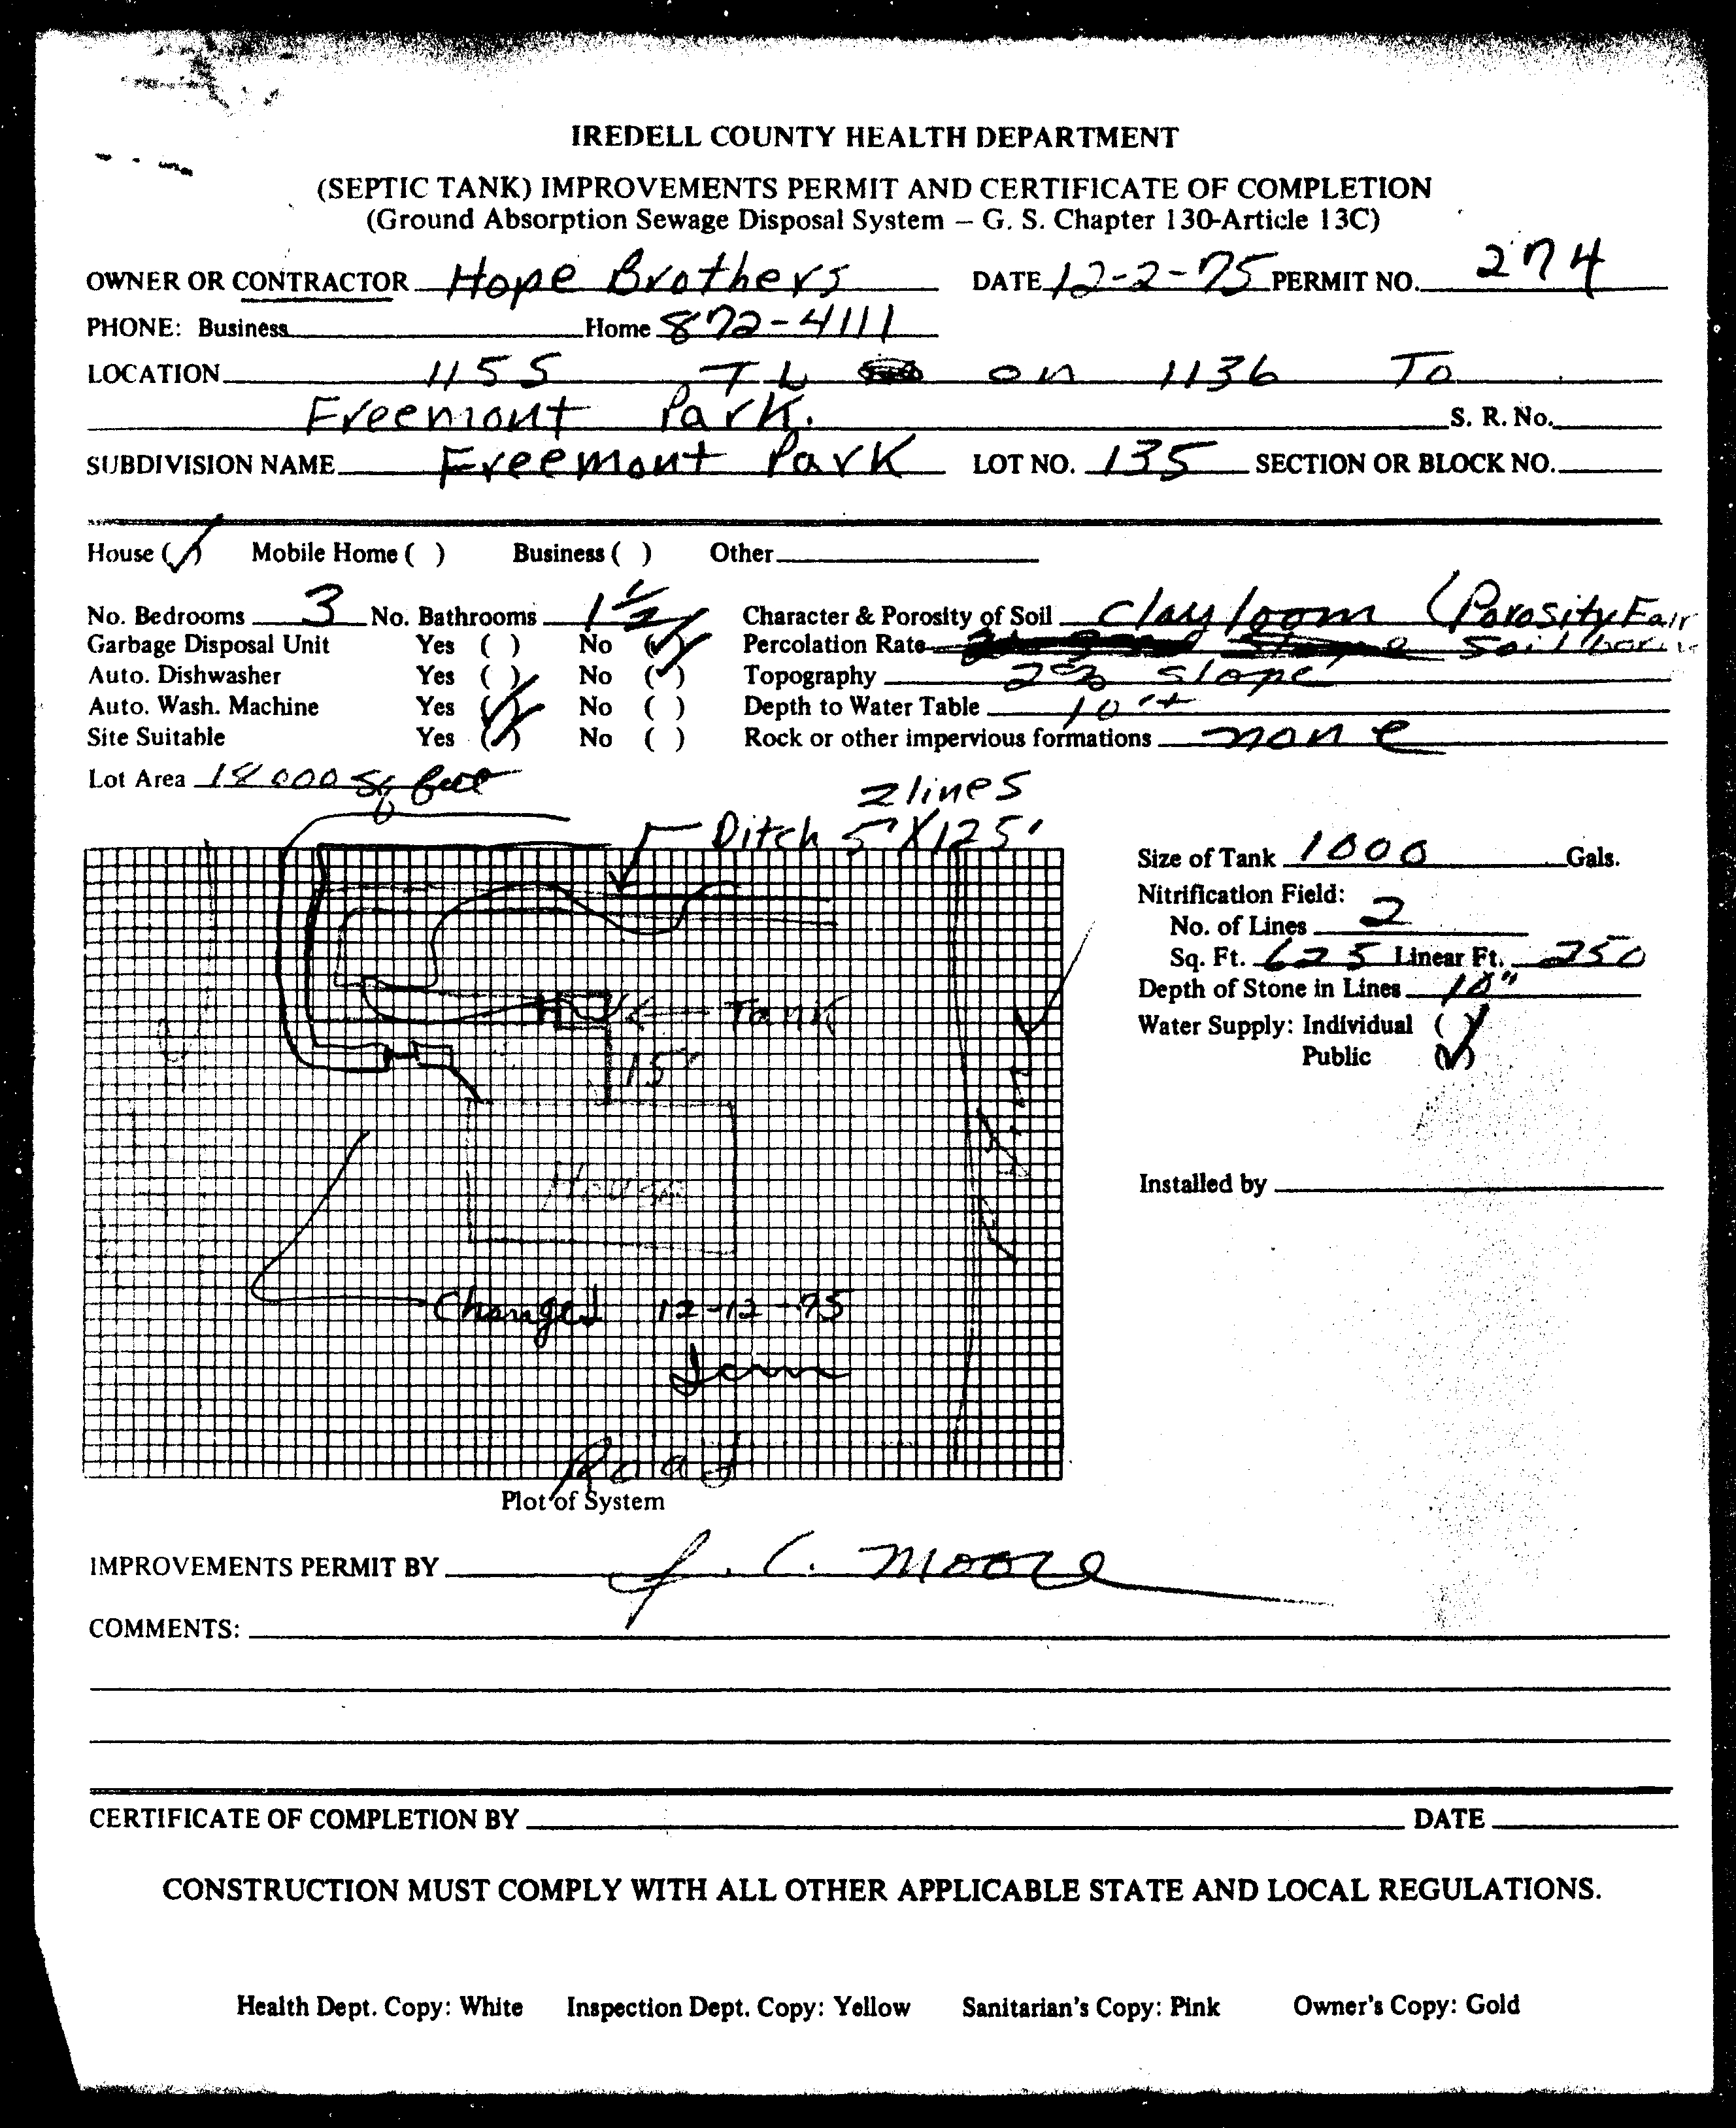 IREDELL COUNTY HEALTH DEPARTMENT
(SEPTIC TANK) IMPROVEMENTS PERMIT AND CERTIFICATE OF COMPLETION
(Ground Absorption Sewage Disposal System – G. S. Chapter 130-Article 13C)
OWNER OR CONTRACTOR Hope Brothers DATE 12-2-75 PERMIT NO. 274
PHONE: Business Home 872-4111
LOCATION 115 S TL on 1136 To
Freemont Park. S. R. No.
SUBDIVISION NAME Freemont Park LOT NO. 135 SECTION OR BLOCK NO.
House (✓) Mobile Home ( ) Business ( ) Other
No. Bedrooms 3 No. Bathrooms 1 1/2 Character & Porosity of Soil clay loom (Porosity Fair
Garbage Disposal Unit Yes ( ) No (✓) Percolation Rate Soil
Auto. Dishwasher Yes ( ) No (✓) Topography 2% slope
Auto. Wash. Machine Yes (✓) No ( ) Depth to Water Table 10'+
Site Suitable Yes (✓) No ( ) Rock or other impervious formations none
Lot Area 18000 Sq feet
2 lines
Ditch 5' X 125'
Size of Tank 1000 Gals.
Nitrification Field:
No. of Lines 2
Sq. Ft. 625 Linear Ft. 250
Depth of Stone in Lines 10"
Water Supply: Individual ( )
Public (✓)
Tank
15'
House
Installed by
Changed 12-12-75
Road
Plot of System
IMPROVEMENTS PERMIT BY J. C. Moore
COMMENTS:
CERTIFICATE OF COMPLETION BY DATE
CONSTRUCTION MUST COMPLY WITH ALL OTHER APPLICABLE STATE AND LOCAL REGULATIONS.
Health Dept. Copy: White Inspection Dept. Copy: Yellow Sanitarian's Copy: Pink Owner's Copy: Gold